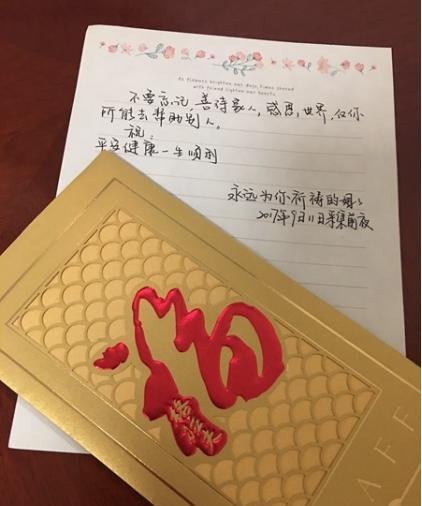 As flowers brighten our days, times shared
with friend lighten our hearts.
不要忘记,善待家人,感恩,世界,仅你
所能去帮助别人。
祝:
平安健康一生顺利
永远为你祈祷的妈妈
2017年9日11日采集前夜
福
AFF